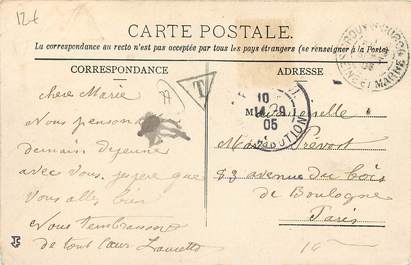 12f
CARTE POSTALE.
La correspondance au recto n'est pas acceptée par tous les pays étrangers (se renseigner à la Poste)
CORRESPONDANCE
ADRESSE
T
chere Marie
Nous pensons
demain dejeuner
avec vous. jespere que
vous allez bien
Nous t'embrassons
de tout cœur
10
14-9
05
DISTRIBUTION
SEINE ET MARNE
Mademoiselle
Marie Prévost
83 avenue du bois
de Boulogne
Paris